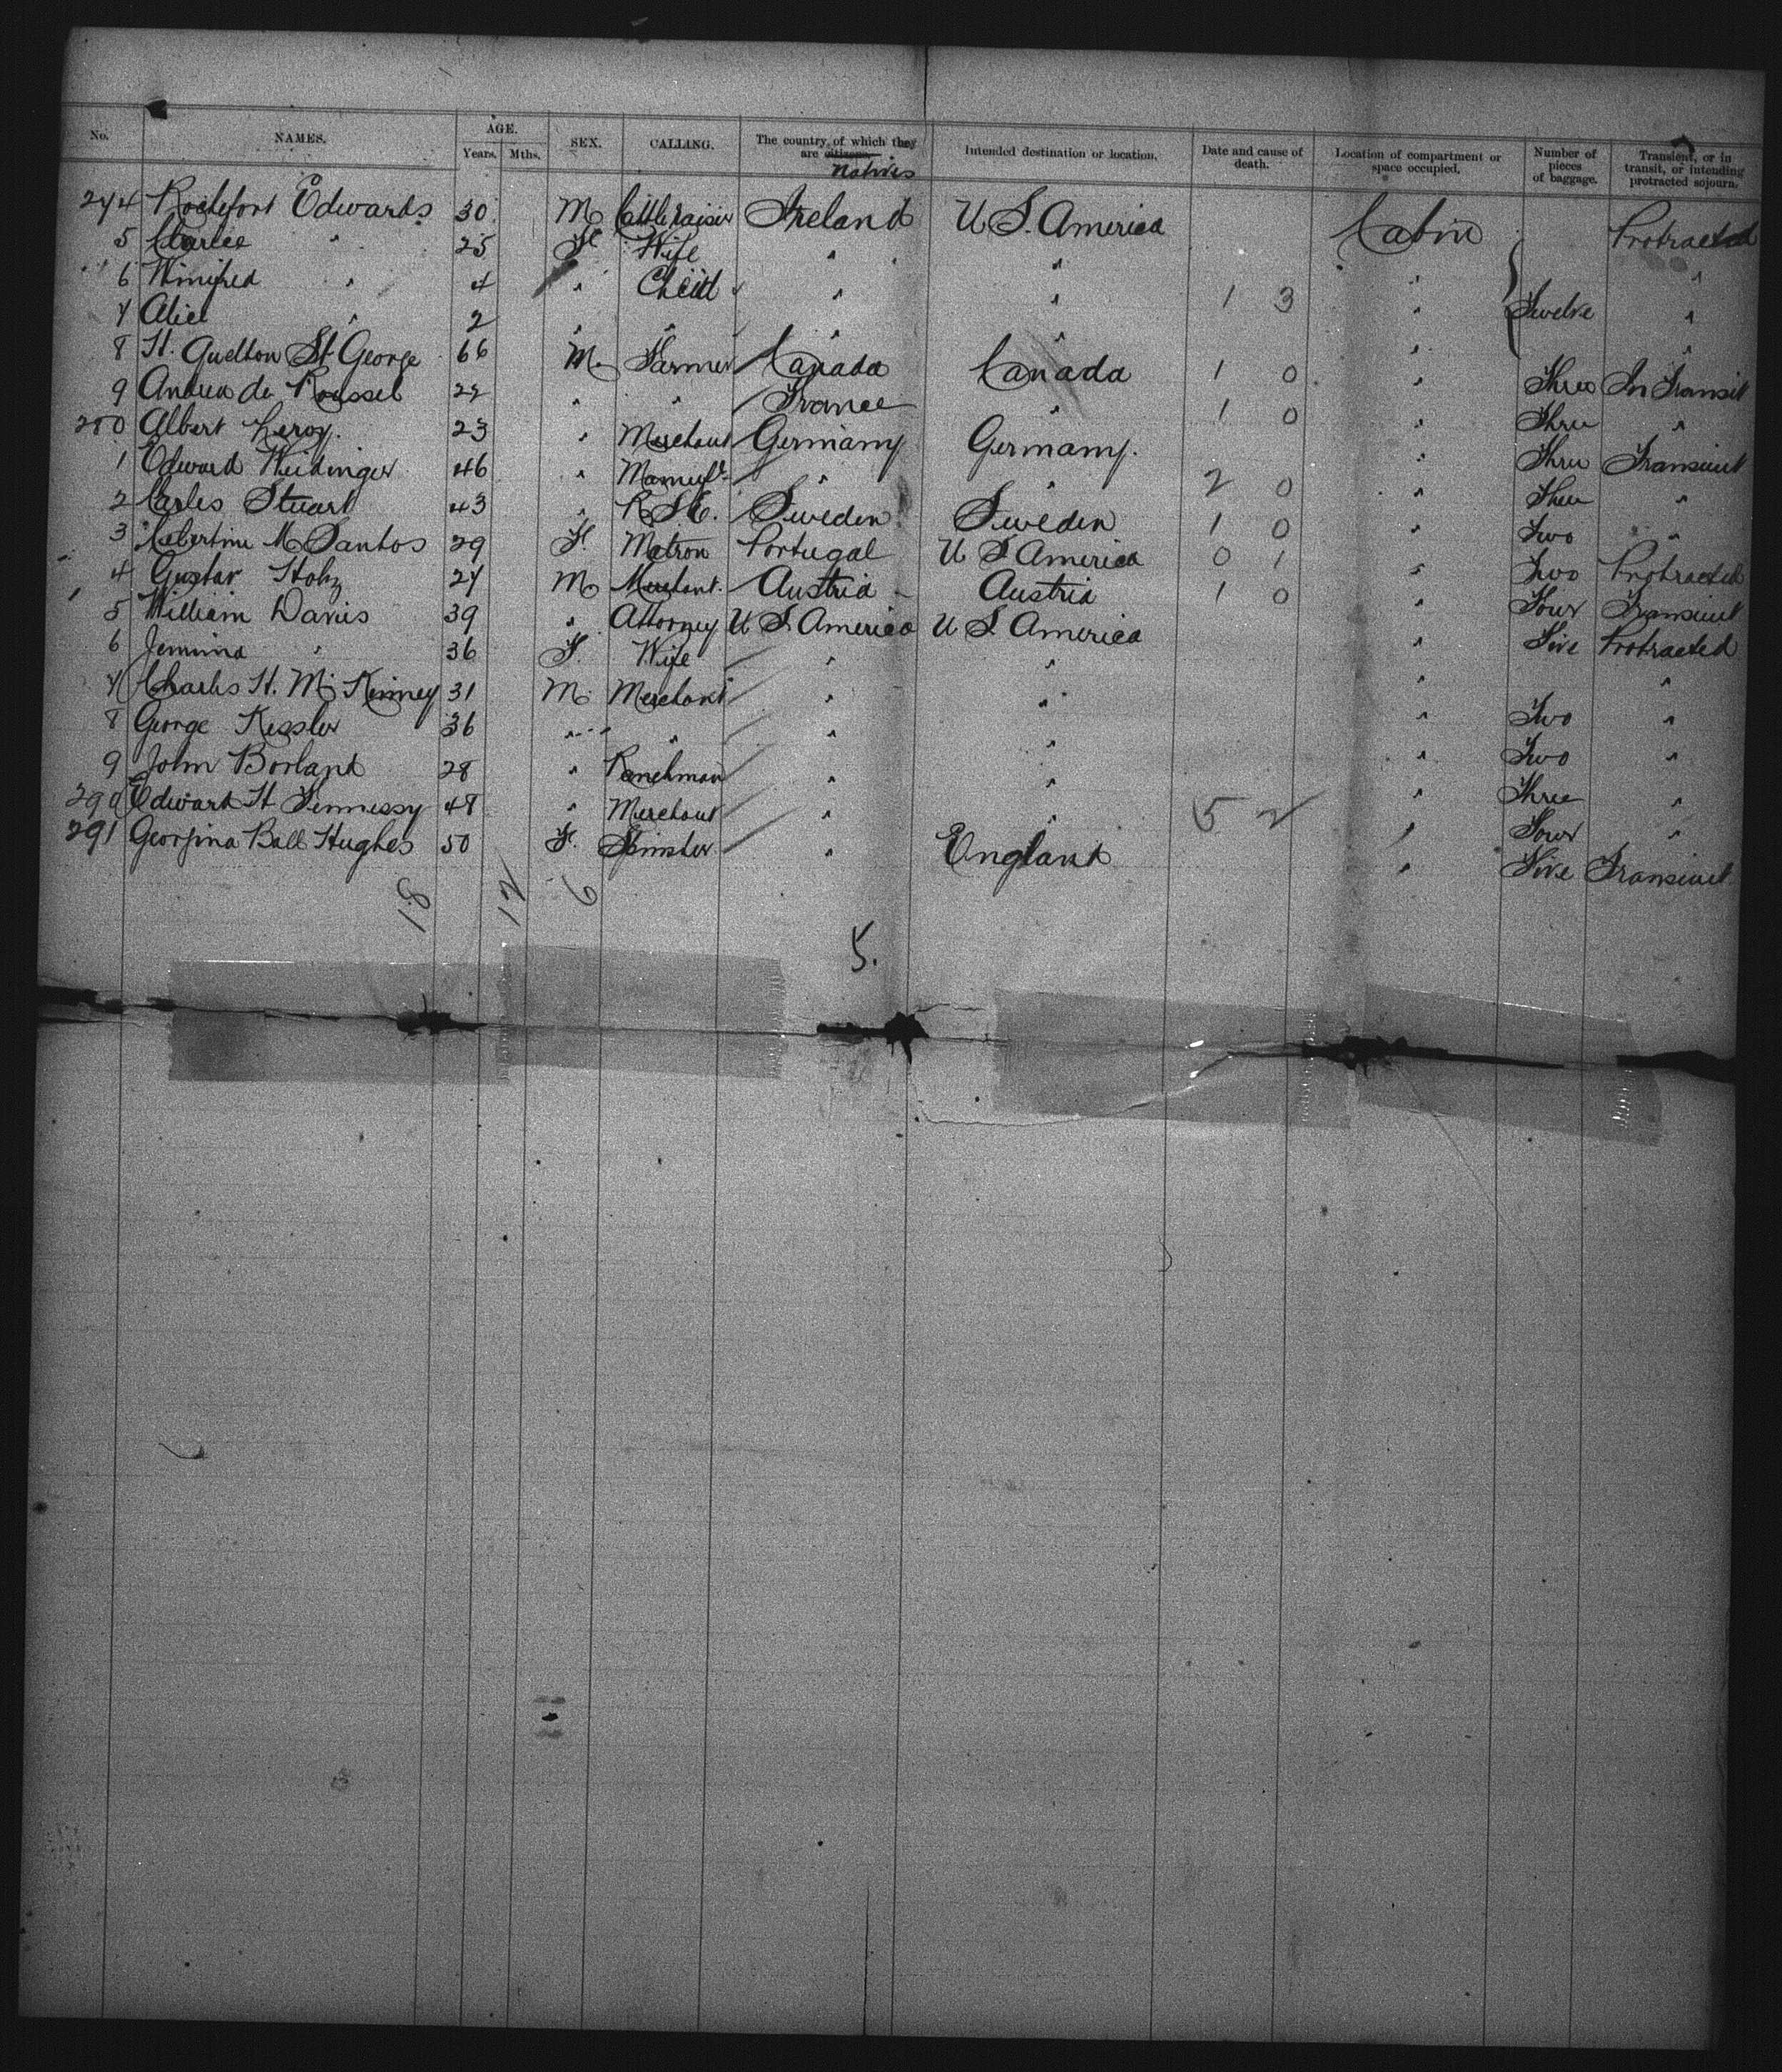 No. NAMES. AGE. Years. Mths. SEX. CALLING. The country of which they are citizens. natives Intended destination or location. Date and cause of death. Location of compartment or space occupied. Number of pieces of baggage. Transient, or in transit, or intending protracted sojourn.
274 Rochefort Edwards 30 M Cattle raiser Ireland U S. America Cabin Protracted
5 " 25 F Wife " " " "
6 Winifred " 4 " Child " " 1 3 " Twelve "
7 Alice " 2 " " " " " "
8 St. Quelton St George 66 M. Farmer Canada Canada 1 0 " Three In Transit
9 Andrea de Roussel 22 " " France " 1 0 " Three "
280 Albert Leroy. 23 " Merchant Germany Germany. " Three Transient
1 Edward Weidinger 46 " Manufr " " 2 0 " Three "
2 Carles Stuart 43 " R. S. E. Sweden Sweden 1 0 " Two "
3 M Santos 29 F. Matron Portugal U S America 0 1 " Two Protracted
4 Gustav Stolz 27 M Merchant. Austria Austria 1 0 " Four Transient
5 William Davis 39 " Attorney U S. America U S America " Five Protracted
6 Jemima " 36 F. Wife " " " "
7 Charles H. Mc Kinney 31 M. Merchant " " " Two "
8 George Kessler 36 " " " " " Two "
9 John Borland 28 " Ranchman " " " Three "
290 Edward H Fennessy 48 " Merchant " " 5 2 " Four "
291 Georgina Ball Hughes 50 F. Spinster " England " Five Transient
18 12 6
5.